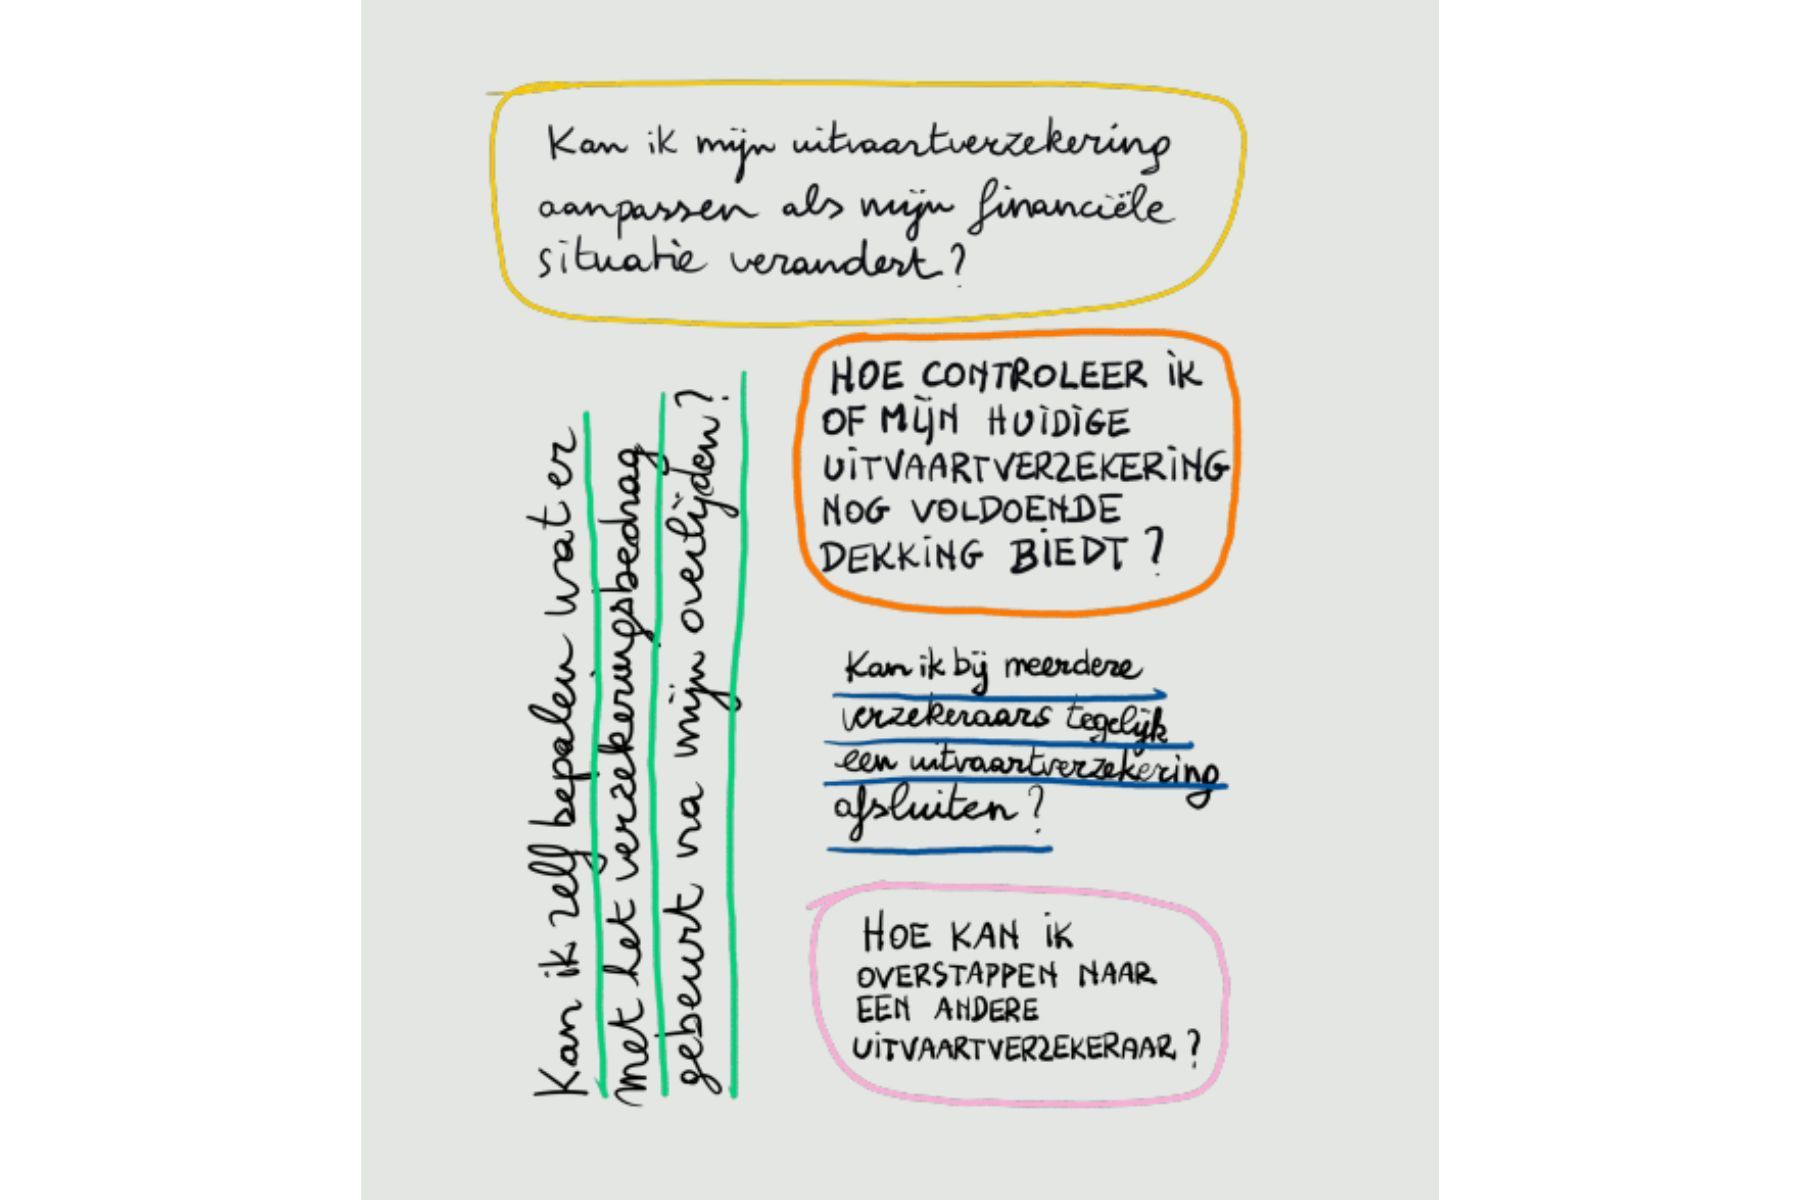 Kan ik mijn uitvaartverzekering
aanpassen als mijn financiële
situatie verandert?
Kan ik zelf bepalen wat er
met het verzekeringsbedrag
gebeurt na mijn overlijden?
HOE CONTROLEER IK
OF MIJN HUIDIGE
UITVAARTVERZEKERING
NOG VOLDOENDE
DEKKING BIEDT?
Kan ik bij meerdere
verzekeraars tegelijk
een uitvaartverzekering
afsluiten?
HOE KAN IK
OVERSTAPPEN NAAR
EEN ANDERE
UITVAARTVERZEKERAAR?